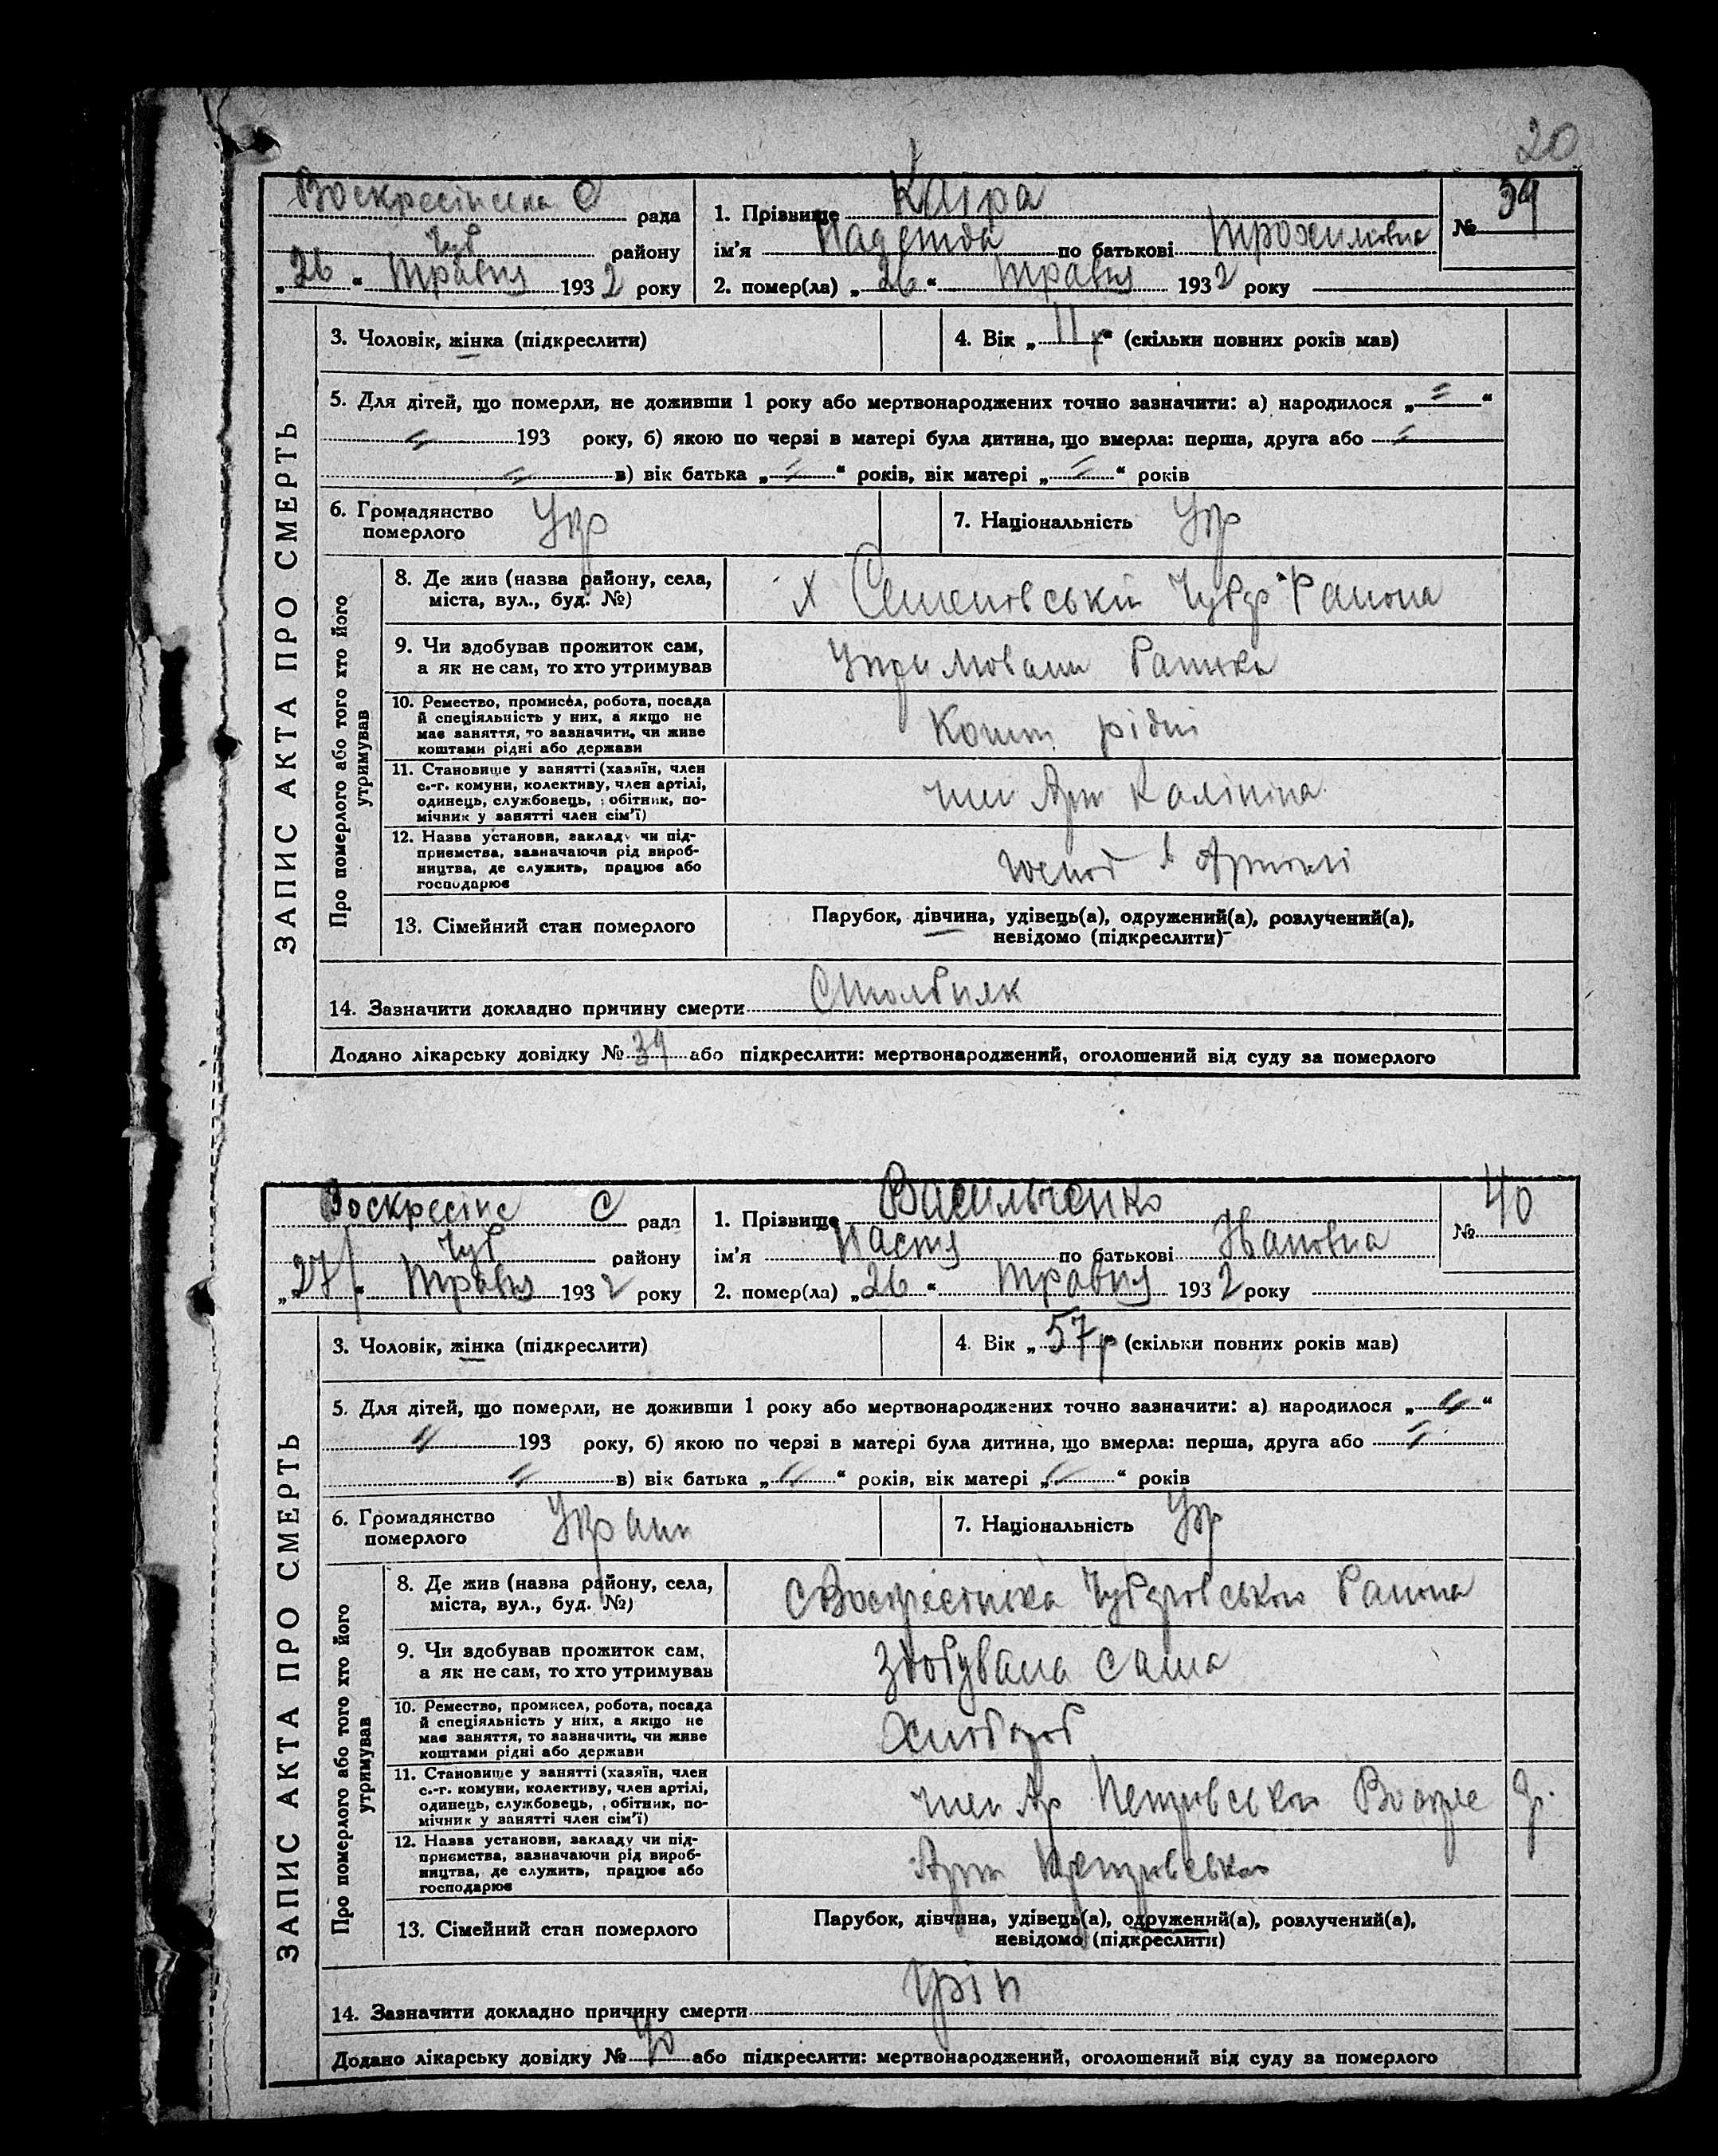 20
Воскресінська С рада
Чуб району
„26“ Травня 1932 року
1. Прізвище Каіра
ім'я Надежда по батькові Трохимовна
2. помер(ла) „26“ Травня 1932 року
№ 39
ЗАПИС АКТА ПРО СМЕРТЬ
3. Чоловік, жінка (підкреслити)
4. Вік „11р“ (скільки повних років мав)
5. Для дітей, що померли, не доживши 1 року або мертвонароджених точно зазначити: а) народилося „ “
193 року, б) якою по черзі в матері була дитина, що вмерла: перша, друга або
в) вік батька „ “ років, вік матері „ “ років
6. Громадянство
померлого
Укр
7. Національність Укр
Про померлого або того хто його
утримував
8. Де жив (назва району, села,
міста, вул., буд. №)
х Семеновській Чубар Района
9. Чи здобував прожиток сам,
а як не сам, то хто утримував
Утримовали Батька
10. Ремество, промисел, робота, посада
й спеціяльність у них, а якщо не
має заняття, то зазначити, чи живе
коштами рідні або держави
Кошт рідні
11. Становище у занятті (хазяїн, член
с.-г. комуни, колективу, член артілі,
одинець, службовець, обітник, по-
мічник у занятті член сім'ї)
член Арт Калініна
12. Назва установи, закладу чи під-
приємства, зазначаючи рід вироб-
ництва, де служить, працює або
господарює
в Артілі
13. Сімейний стан померлого
Парубок, дівчина, удівець(а), одружений(а), розлучений(а),
невідомо (підкреслити)
14. Зазначити докладно причину смерти Столбняк
Додано лікарську довідку № 39 або підкреслити: мертвонароджений, оголошений від суду за померлого
Воскресінс С рада
Чуб району
„27“ Травня 1932 року
1. Прізвище Васильченко
ім'я Настя по батькові Івановна
2. помер(ла) „26“ Травня 1932 року
№ 40
ЗАПИС АКТА ПРО СМЕРТЬ
3. Чоловік, жінка (підкреслити)
4. Вік „57р“ (скільки повних років мав)
5. Для дітей, що померли, не доживши 1 року або мертвонароджених точно зазначити: а) народилося „ “
193 року, б) якою по черзі в матері була дитина, що вмерла: перша, друга або
в) вік батька „ “ років, вік матері „ “ років
6. Громадянство
померлого
Україн
7. Національність Укр
Про померлого або того хто його
утримував
8. Де жив (назва району, села,
міста, вул., буд. №)
С Воскресінска Чубаровського Района
9. Чи здобував прожиток сам,
а як не сам, то хто утримував
Здобувала сама
10. Ремество, промисел, робота, посада
й спеціяльність у них, а якщо не
має заняття, то зазначити, чи живе
коштами рідні або держави
Хлібороб
11. Становище у занятті (хазяїн, член
с.-г. комуни, колективу, член артілі,
одинець, службовець, обітник, по-
мічник у занятті член сім'ї)
член Ар Петровського Воскре
12. Назва установи, закладу чи під-
приємства, зазначаючи рід вироб-
ництва, де служить, працює або
господарює
Арт Петровського
13. Сімейний стан померлого
Парубок, дівчина, удівець(а), одружений(а), розлучений(а),
невідомо (підкреслити)
14. Зазначити докладно причину смерти Гріп
Додано лікарську довідку № 40 або підкреслити: мертвонароджений, оголошений від суду за померлого